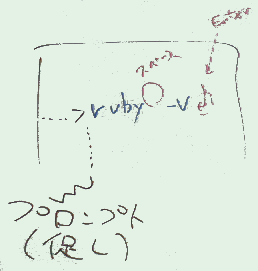 Enter
スペース
> ruby -v
プロンプト
(促し)